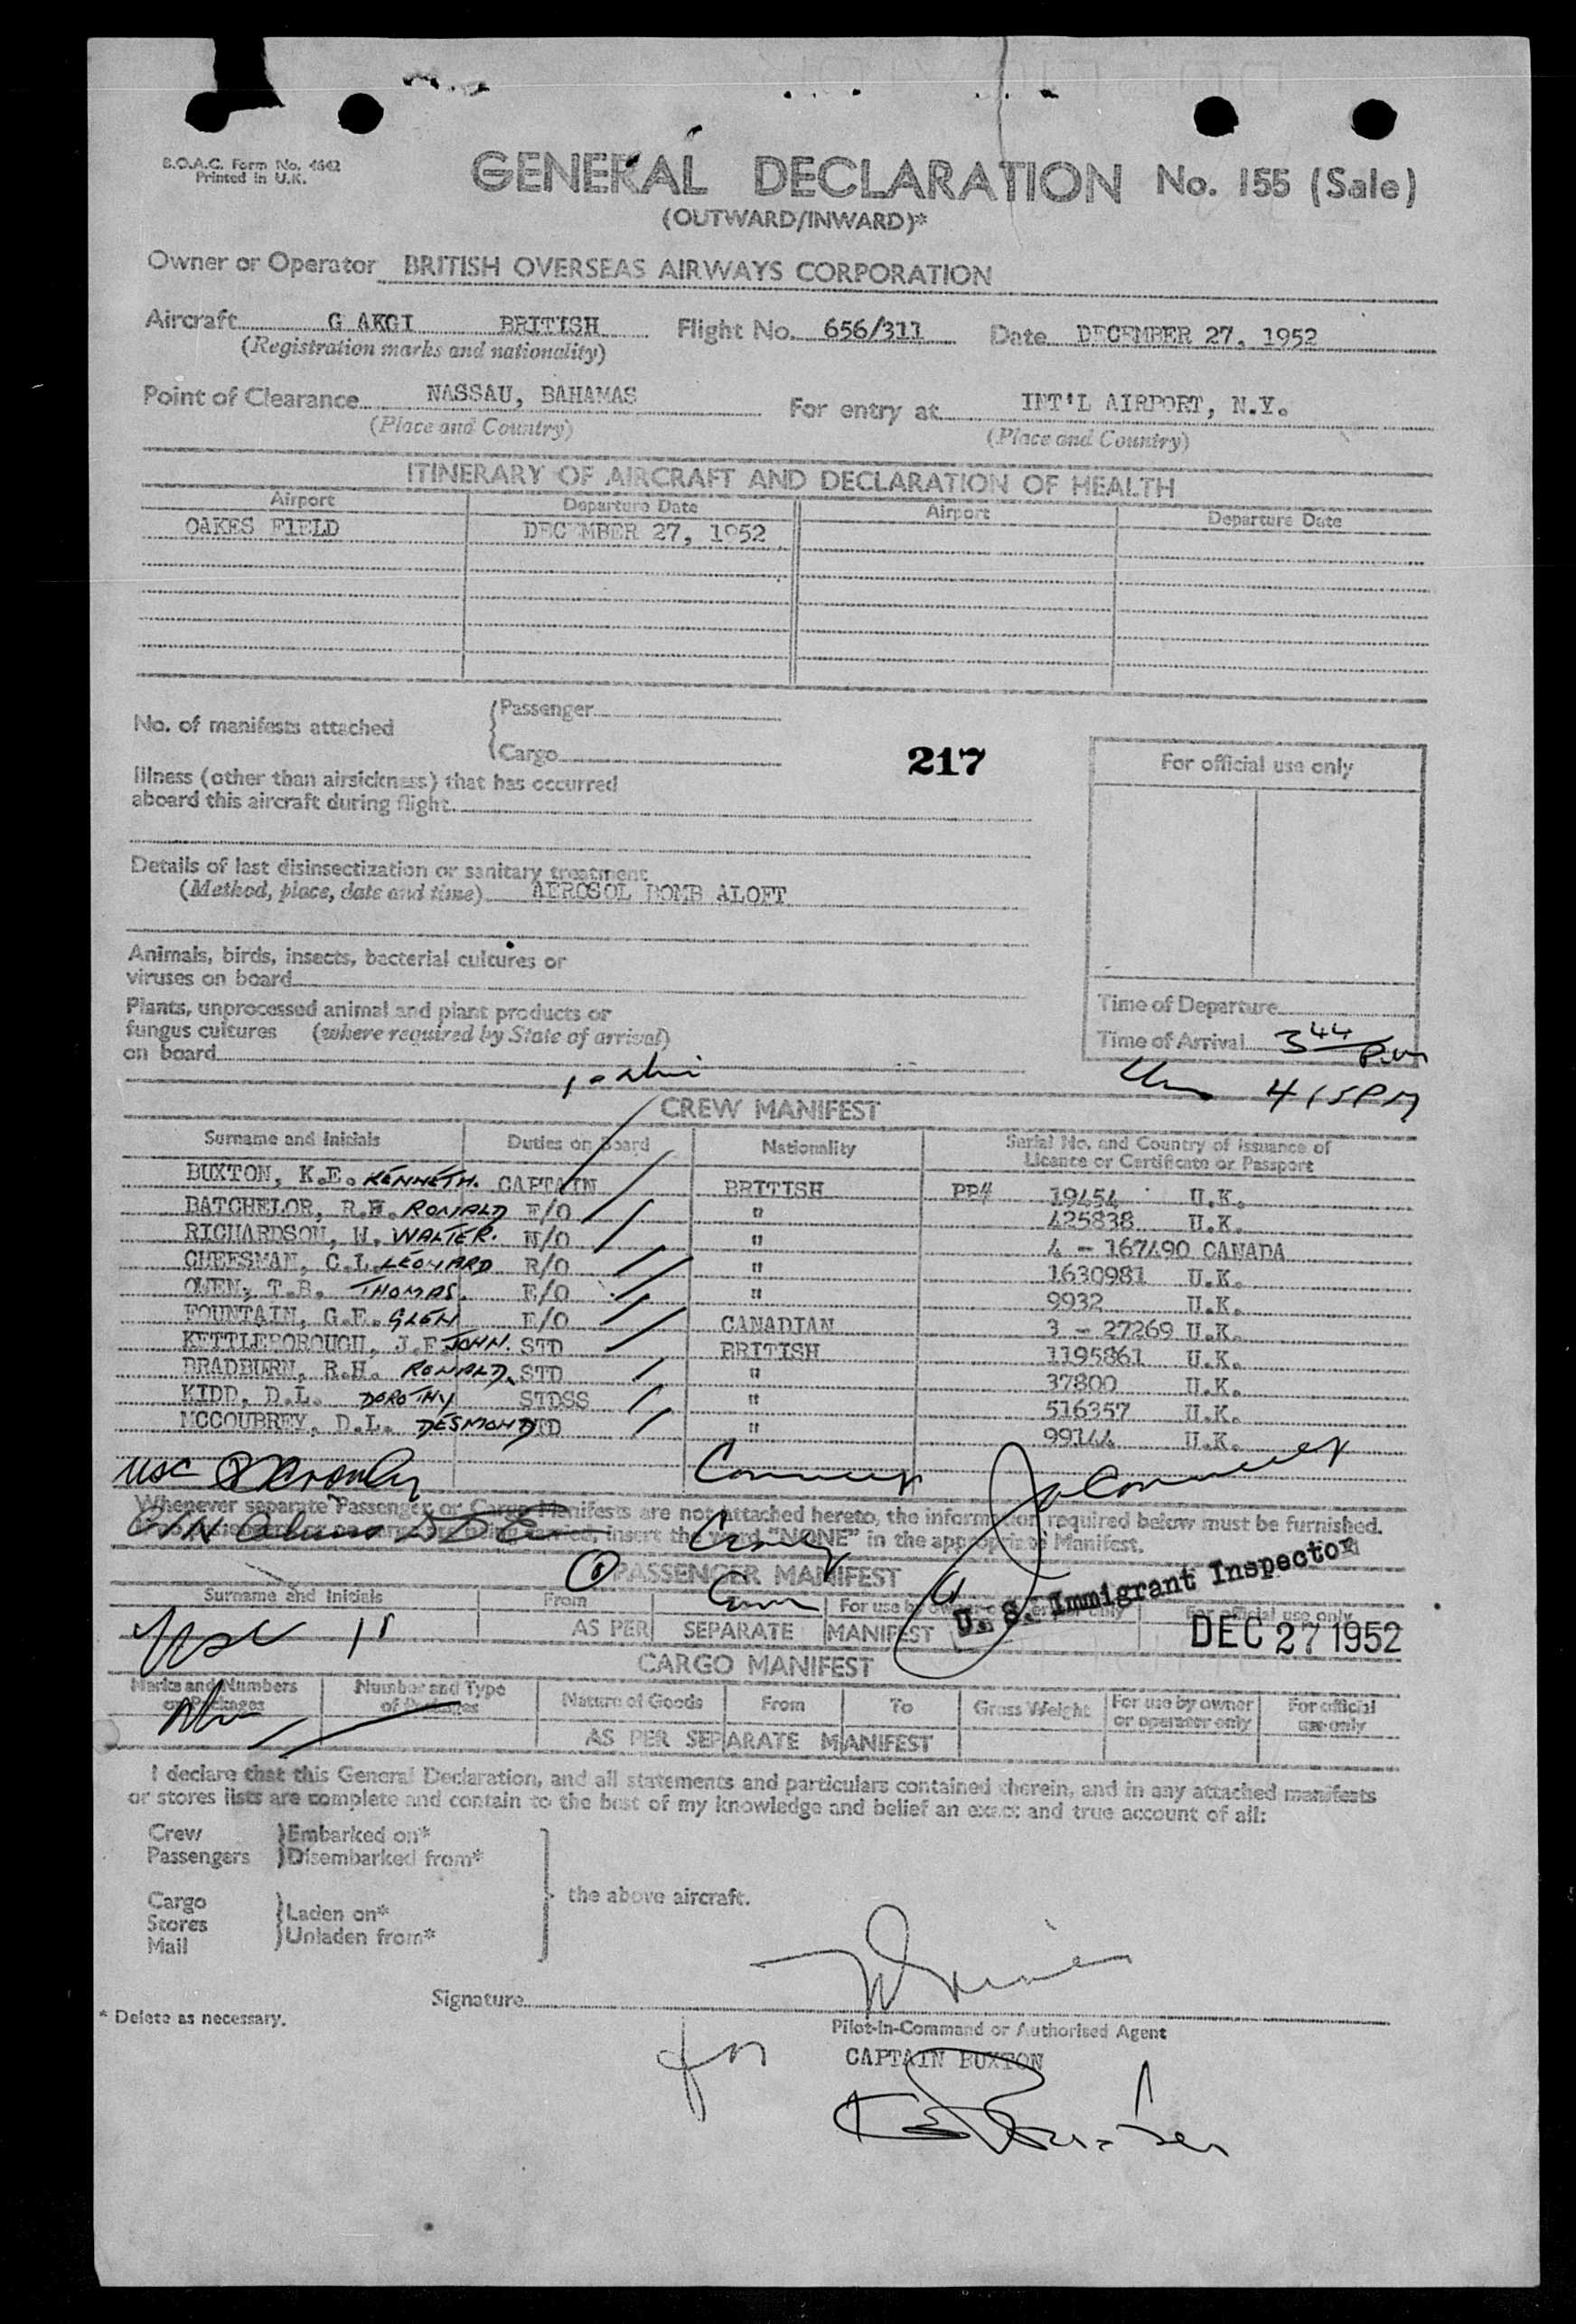 B.O.A.C. Form No. 4642
Printed in U.K.
GENERAL DECLARATION No. 155 (Sale)
(OUTWARD/INWARD)*
Owner or Operator BRITISH OVERSEAS AIRWAYS CORPORATION
Aircraft G AKGI BRITISH Flight No. 656/311 Date DECEMBER 27, 1952
(Registration marks and nationality)
Point of Clearance NASSAU, BAHAMAS For entry at INT'L AIRPORT, N.Y.
(Place and Country) (Place and Country)
ITINERARY OF AIRCRAFT AND DECLARATION OF HEALTH
Airport Departure Date Airport Departure Date
OAKES FIELD DECEMBER 27, 1952
No. of manifests attached
Passenger
Cargo
217
For official use only
Illness (other than airsickness) that has occurred
aboard this aircraft during flight
Details of last disinsectization or sanitary treatment
(Method, place, date and time) AEROSOL BOMB ALOFT
Animals, birds, insects, bacterial cultures or
viruses on board
Plants, unprocessed animal and plant products or
fungus cultures (where required by State of arrival)
on board
Time of Departure
Time of Arrival 3 44 P.M
4 15 PM
CREW MANIFEST
Surname and Initials Duties on Board Nationality Serial No. and Country of Issuance of
Licence or Certificate or Passport
BUXTON, K.E. KENNETH. CAPTAIN BRITISH PP# 19454 U.K.
BATCHELOR, R.H. RONALD F/O " 425838 U.K.
RICHARDSON, W. WALTER. N/O " 4 - 167490 CANADA
CHEESMAN, C.L. LEONARD R/O " 1630981 U.K.
OWEN, T.R. THOMAS. E/O " 9932 U.K.
FOUNTAIN, G.E. GLEN E/O CANADIAN 3 - 27269 U.K.
KETTLEBOROUGH, J.F. JOHN. STD BRITISH 1195861 U.K.
BRADBURN, R.H. RONALD. STD " 37800 U.K.
KIDD, D.L. DOROTHY STDSS " 516357 U.K.
MCCOUBREY, D.L. DESMOND STD " 99144 U.K.
Whenever separate Passenger or Cargo Manifests are not attached hereto, the information required below must be furnished.
insert the word "NONE" in the appropriate Manifest.
PASSENGER MANIFEST
U. S. Immigrant Inspector
Surname and Initials From For use by owner or operator only For official use only
AS PER SEPARATE MANIFEST
DEC 27 1952
CARGO MANIFEST
Marks and Numbers on Packages Number and Type of Packages Nature of Goods From To Gross Weight For use by owner or operator only For official use only
AS PER SEPARATE MANIFEST
I declare that this General Declaration, and all statements and particulars contained therein, and in any attached manifests
or stores lists are complete and contain to the best of my knowledge and belief an exact and true account of all:
Crew Embarked on*
Passengers Disembarked from*
the above aircraft.
Cargo
Stores Laden on*
Mail Unladen from*
Signature
* Delete as necessary.
Pilot-in-Command or Authorised Agent
for CAPTAIN BUXTON